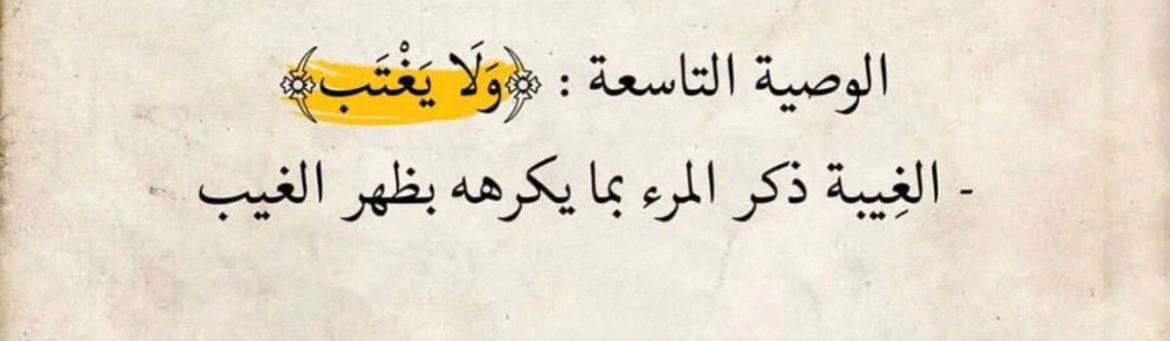 الوصية التاسعة : ﴿وَلَا يَغْتَب﴾
- الغِيبة ذكر المرء بما يكرهه بظهر الغيب